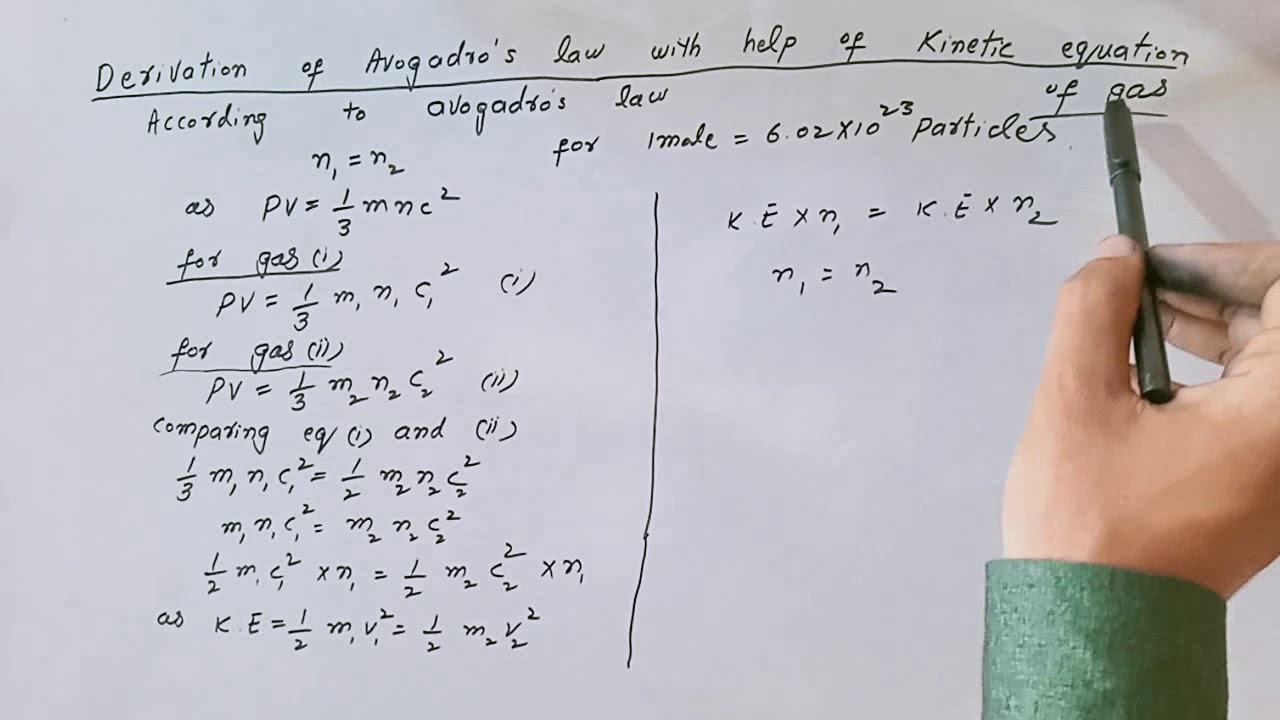 Derivation of Avogadro's law with help of Kinetic equation
of gas
According to avogadro's law
for 1mole = 6.02×10²³ Particles.
n₁ = n₂
as PV = 1/3 mnc²
for gas(i)
PV = 1/3 m₁ n₁ c₁² (i)
for gas(ii)
PV = 1/3 m₂ n₂ c₂² (ii)
comparing eq (i) and (ii)
1/3 m₁ n₁ c₁² = 1/2 m₂ n₂ c₂²
m₁ n₁ c₁² = m₂ n₂ c₂²
1/2 m₁ c₁² × n₁ = 1/2 m₂ c₂² × n₁
as K.E = 1/2 m₁ v₁² = 1/2 m₂ v₂²
K.Ē × n₁ = K.Ē × n₂
n₁ = n₂